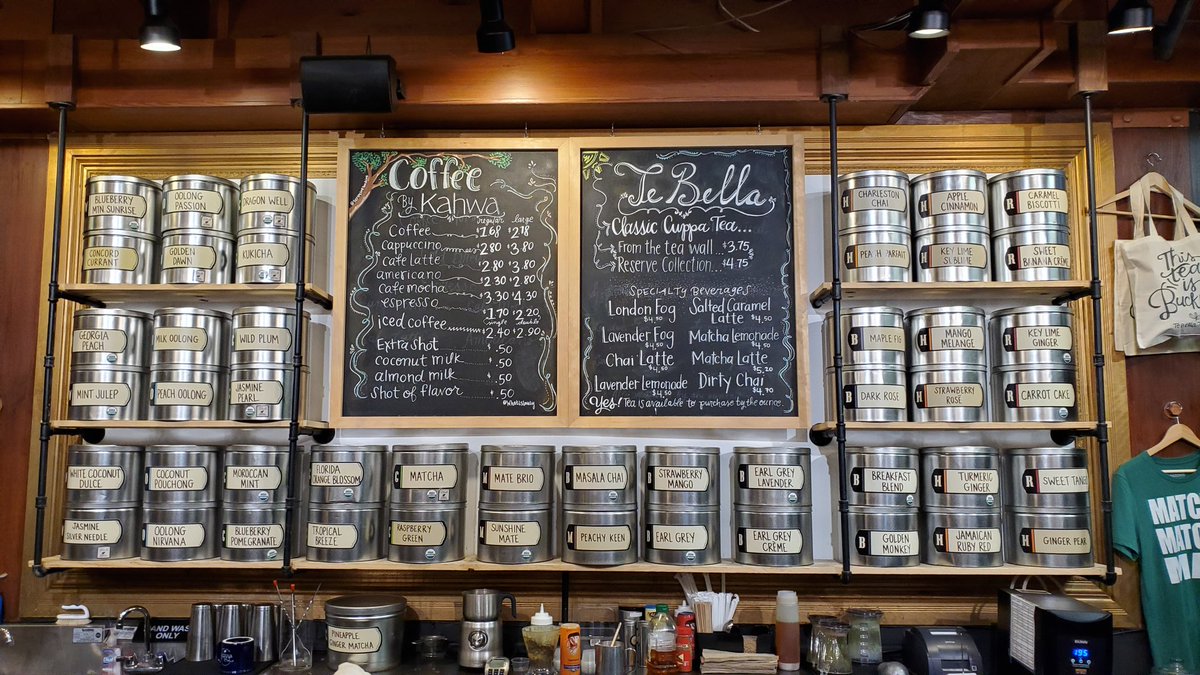 Coffee
By Kahwa
regular large
Coffee $1.68 $2.18
cappuccino 2.80 $3.80
cafe latte 2.80 $3.80
americano
cafe mocha 3.30 $4.30
espresso $1.70 $2.20
single double
iced coffee 2.40 $2.90
Extra shot .50
coconut milk .50
almond milk .50
Shot of flavor .50
Te Bella
Classic Cuppa Tea...
From the tea wall... $3.75
Reserve Collection... $4.75
Specialty Beverages
London Fog
$4.50
Salted Caramel
Latte $4.50
Lavender Fog
$4.50
Matcha Lemonade
$4.50
Chai Latte
$4.50
Matcha Latte
$5.20
Lavender Lemonade
$4.50
Dirty Chai
$4.70
Yes! Tea is available to purchase by the ounce.
BLUEBERRY
MTN. SUNRISE
OOLONG
PASSION
DRAGON WELL
CONCORD
CURRANT
GOLDEN
DAWN
KUKICHA
GEORGIA
PEACH
MILK OOLONG
WILD PLUM
MINT JULEP
PEACH OOLONG
JASMINE
PEARL
WHITE COCONUT
DULCE
COCONUT
POUCHONG
MOROCCAN
MINT
FLORIDA
ORANGE BLOSSOM
MATCHA
MATE BRIO
MASALA CHAI
STRAWBERRY
MANGO
EARL GREY
LAVENDER
JASMINE
SILVER NEEDLE
OOLONG
NIRVANA
BLUEBERRY
POMEGRANATE
TROPICAL
BREEZE
RASPBERRY
GREEN
SUNSHINE
MATE
PEACHY KEEN
EARL GREY
EARL GREY
CRÈME
CHARLESTON
CHAI
APPLE
CINNAMON
CARAMEL
BISCOTTI
PEACH PARFAIT
KEY LIME
SUBLIME
SWEET
BANANA CRÈME
MAPLE FIG
MANGO
MELANGE
KEY LIME
GINGER
DARK ROSE
STRAWBERRY
ROSE
CARROT CAKE
BREAKFAST
BLEND
TURMERIC
GINGER
SWEET TANGO
GOLDEN
MONKEY
JAMAICAN
RUBY RED
GINGER PEAR
This
tea
is
Buck
MATC
MATC
MA
HAND WAS
ONLY
PINEAPPLE
GINGER MATCHA
195